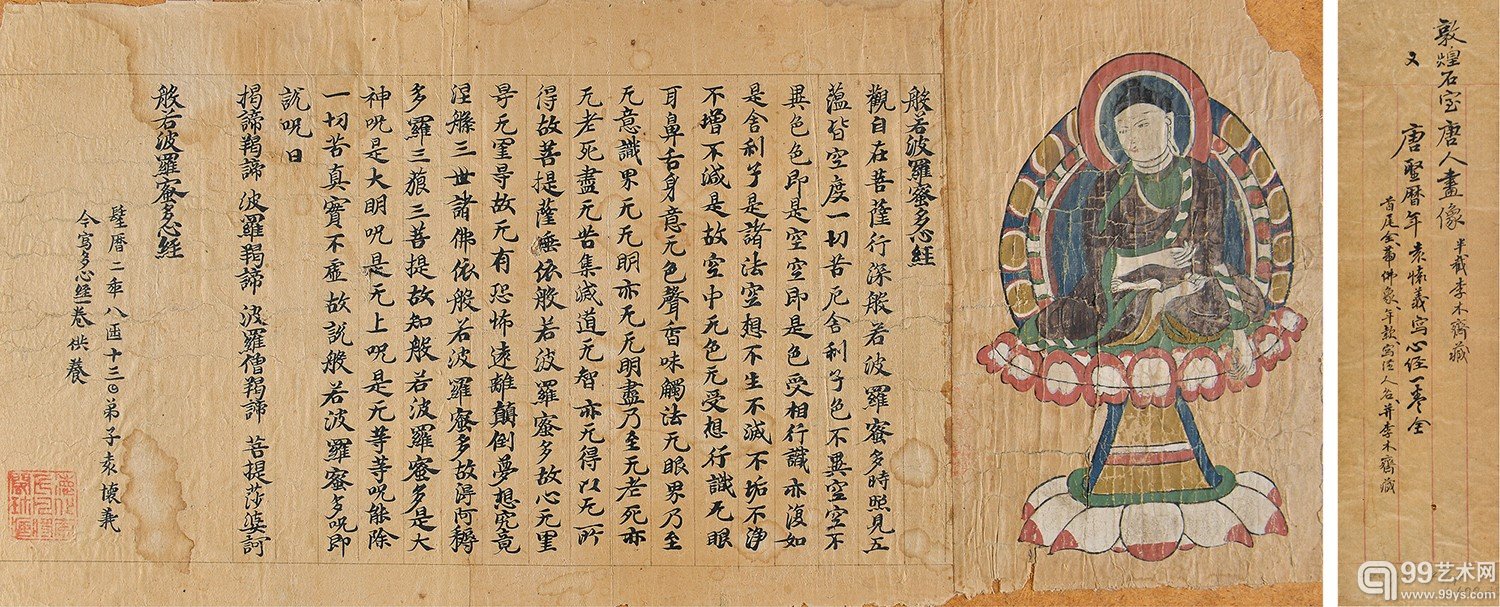 敦煌石室唐人畫像 半截李木齋藏
又 唐聖曆年袁懷義寫心經一卷全
首尾全帶佛象、年款寫經人名并李木齋藏
般若波羅蜜多心経
觀自在菩薩行深般若波羅蜜多時照見五
蕰皆空度一切苦厄舍利子色不異空空不
異色色即是空空即是色受相行識亦復如
是舍利子是諸法空想不生不滅不垢不浄
不增不減是故空中无色无受想行識无眼
耳鼻舌身意无色聲香味觸法无眼界乃至
无意識界无无明亦无无明盡乃至无老死亦
无老死盡无苦集滅道无智亦无得以无所
得故菩提薩埵依般若波羅蜜多故心无罣
㝵无罣㝵故无有恐怖遠離顛倒夢想究竟
涅槃三世諸佛依般若波羅蜜多故得阿耨
多羅三藐三菩提故知般若波羅蜜多是大
神呪是大明呪是无上呪是无等等呪能除
一切苦真實不虛故説般若波羅蜜多呪即
説呪曰
揭諦羯諦 波羅羯諦 波羅僧羯諦 菩提莎婆訶
般若波羅蜜多心経
聖曆二𠡦八囝十三〇弟子袁懷義
今寫多心経一卷供養
德化李氏凡將閣珍藏
99艺术网
www.99ys.com